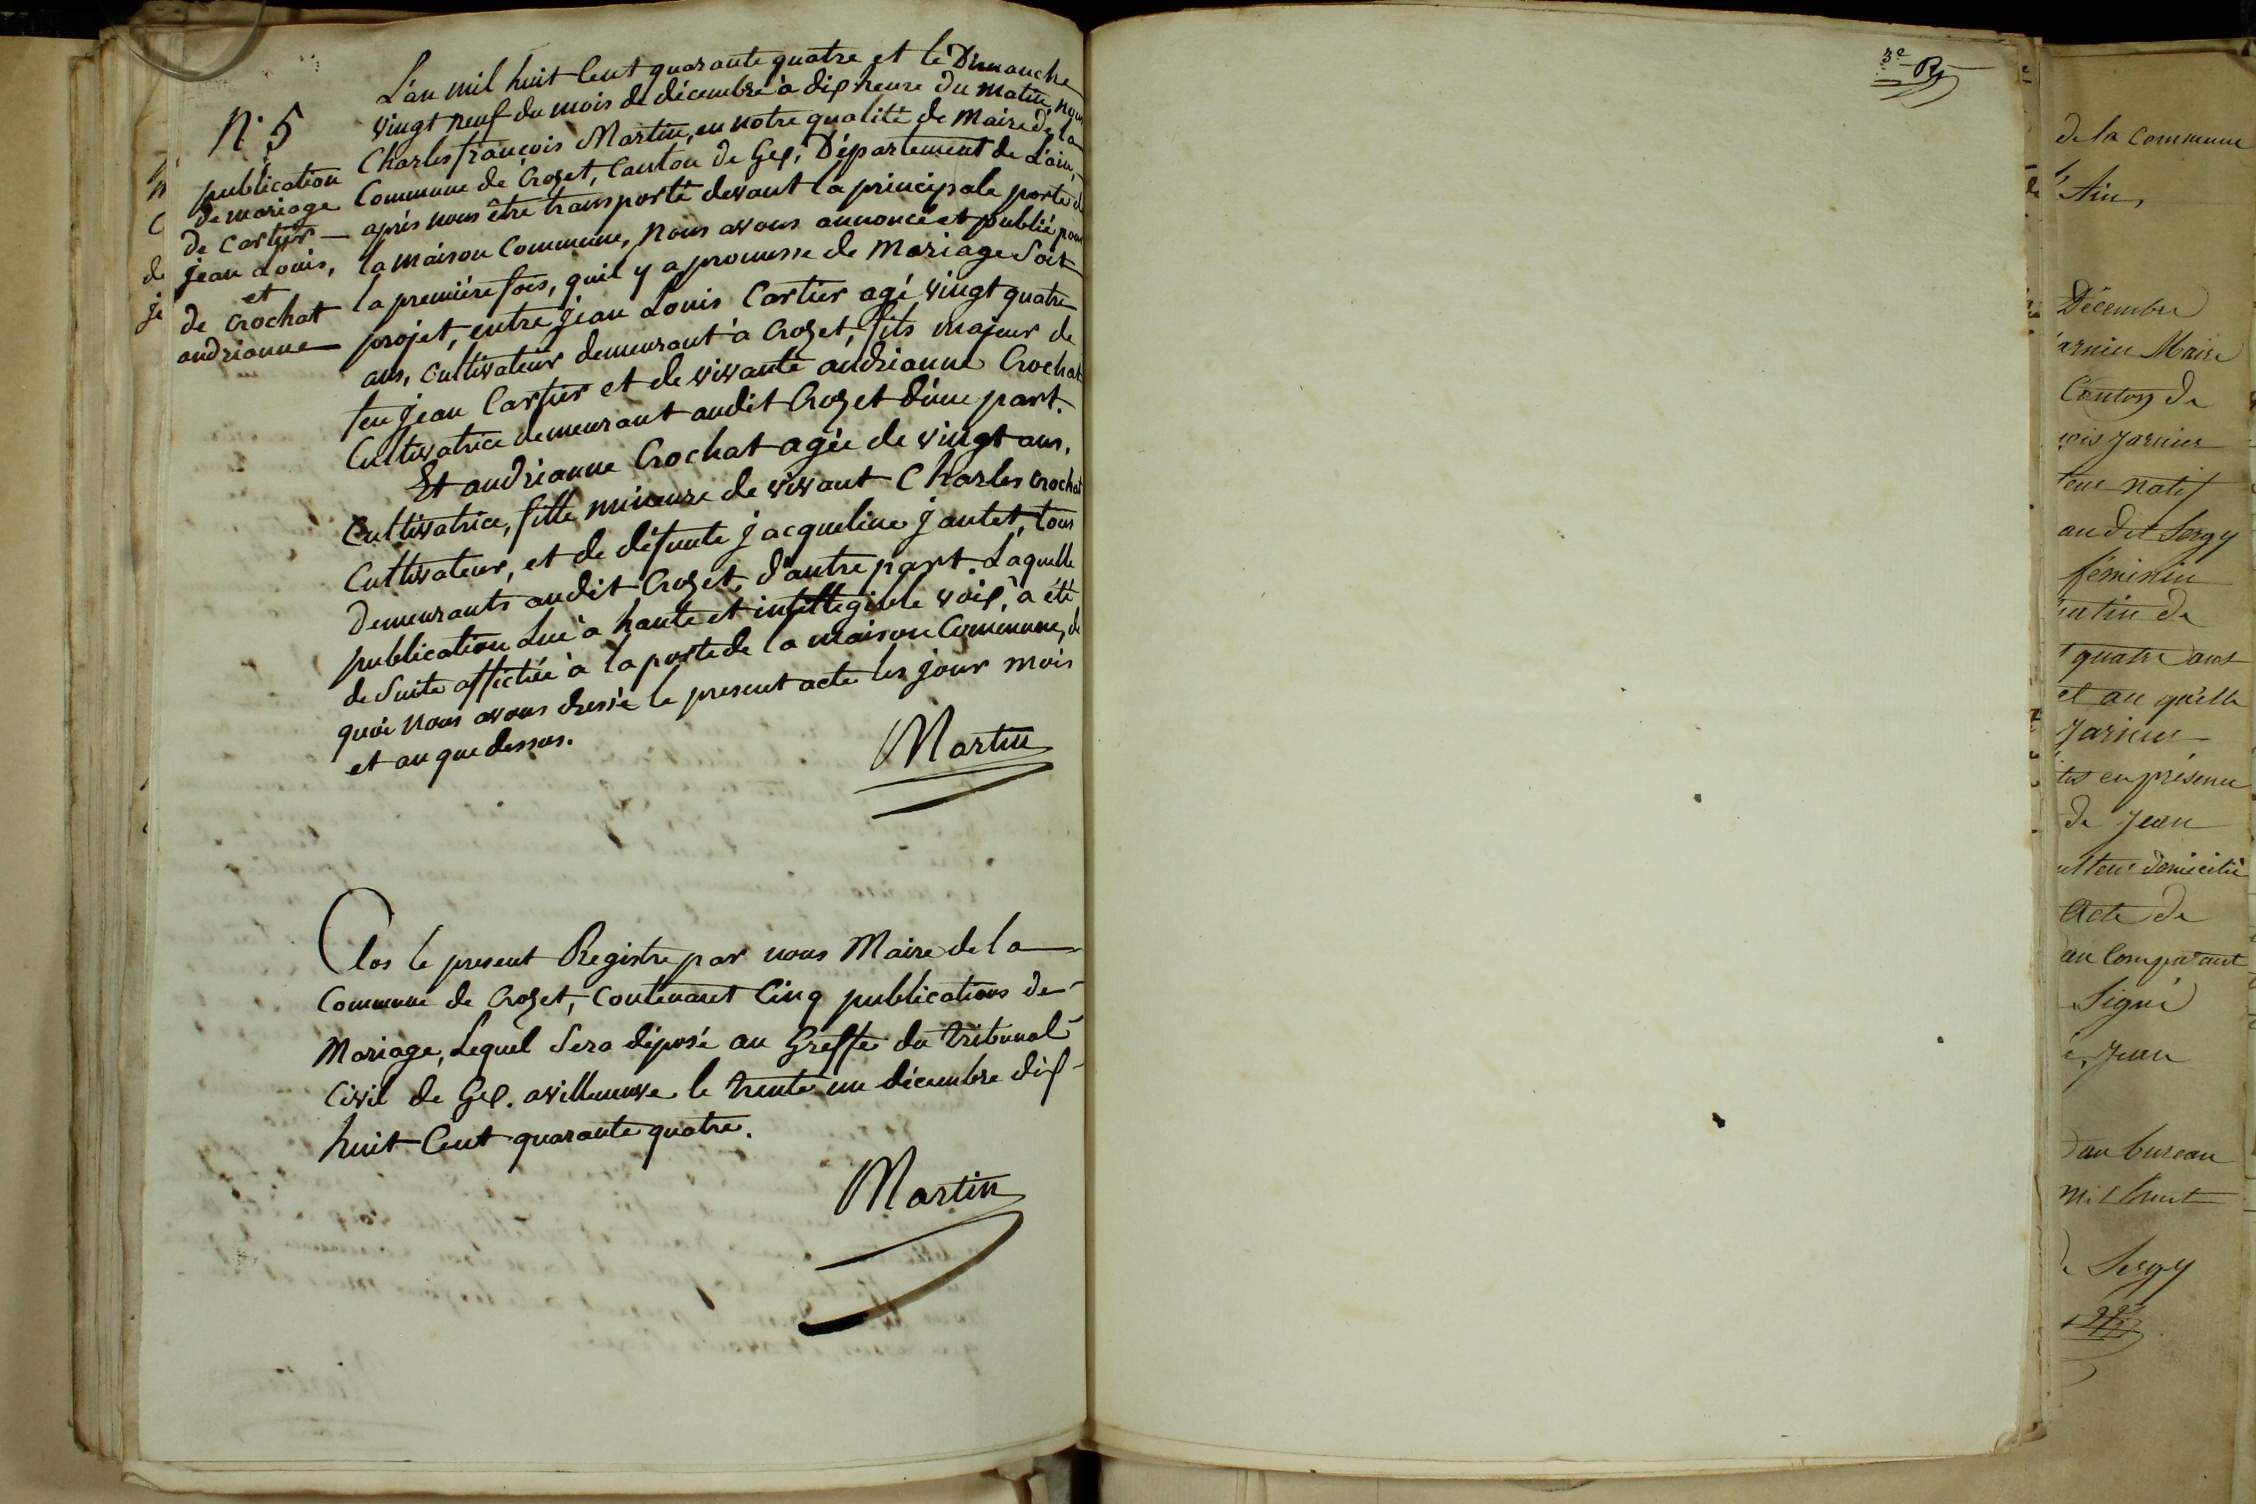 N° 5
publication
de mariage
de Cartier
jean Louis,
et
de Crochat
andrianne
L'an mil huit Cent quarante quatre et le Dimanche
vingt neuf du mois de décembre à dix heure du matin, nous
Charles françois Martin, en notre qualité de Maire de la
Commune de Crozet, Canton de Gex, Département de L'ain,
après nous être transporté devant la principale porte de
la maison Commune, nous avons annoncé et publié pour
la première fois, qu'il y a promesse de Mariage Soit
projet, entre jean Louis Cartier agé vingt quatre
ans, Cultivateur demeurant à Crozet, fils majeur de
feu jean Cartier et de vivante andrianne Crochat
Cultivatrice demeurant audit Crozet d'une part.
Et andrianne Crochat agée de vingt ans,
Cultivatrice, fille mineure de vivant Charles Crochat
Cultivateur, et de défunte jacqueline jantet, tous
demeurants audit Crozet, d'autre part. Laquelle
publication Lue à haute et intellegible voix, a été
de Suite affichée à la porte de la maison Commune, de
quoi nous avons dressé le present acte les jour mois
et an que dessus.
Martin
Clos le present Registre par nous Maire de la
Commune de Crozet, Contenant Cinq publications de
Mariage, Lequel Sera déposé au Greffe du tribunal
Civil de Gex. avilleneuve le trente un décembre dix
huit Cent quarante quatre.
Martin
3e
de la Commune
Ain,
Décembre
Maire
Canton de
Jarnier
natif
audit Sergy
féminin
de
quatre ans
et an qu'elle
Jarnier
en présence
de Jean
domicilié
Acte de
au Comparant
Signé
Jean
au bureau
mil huit
Sergy